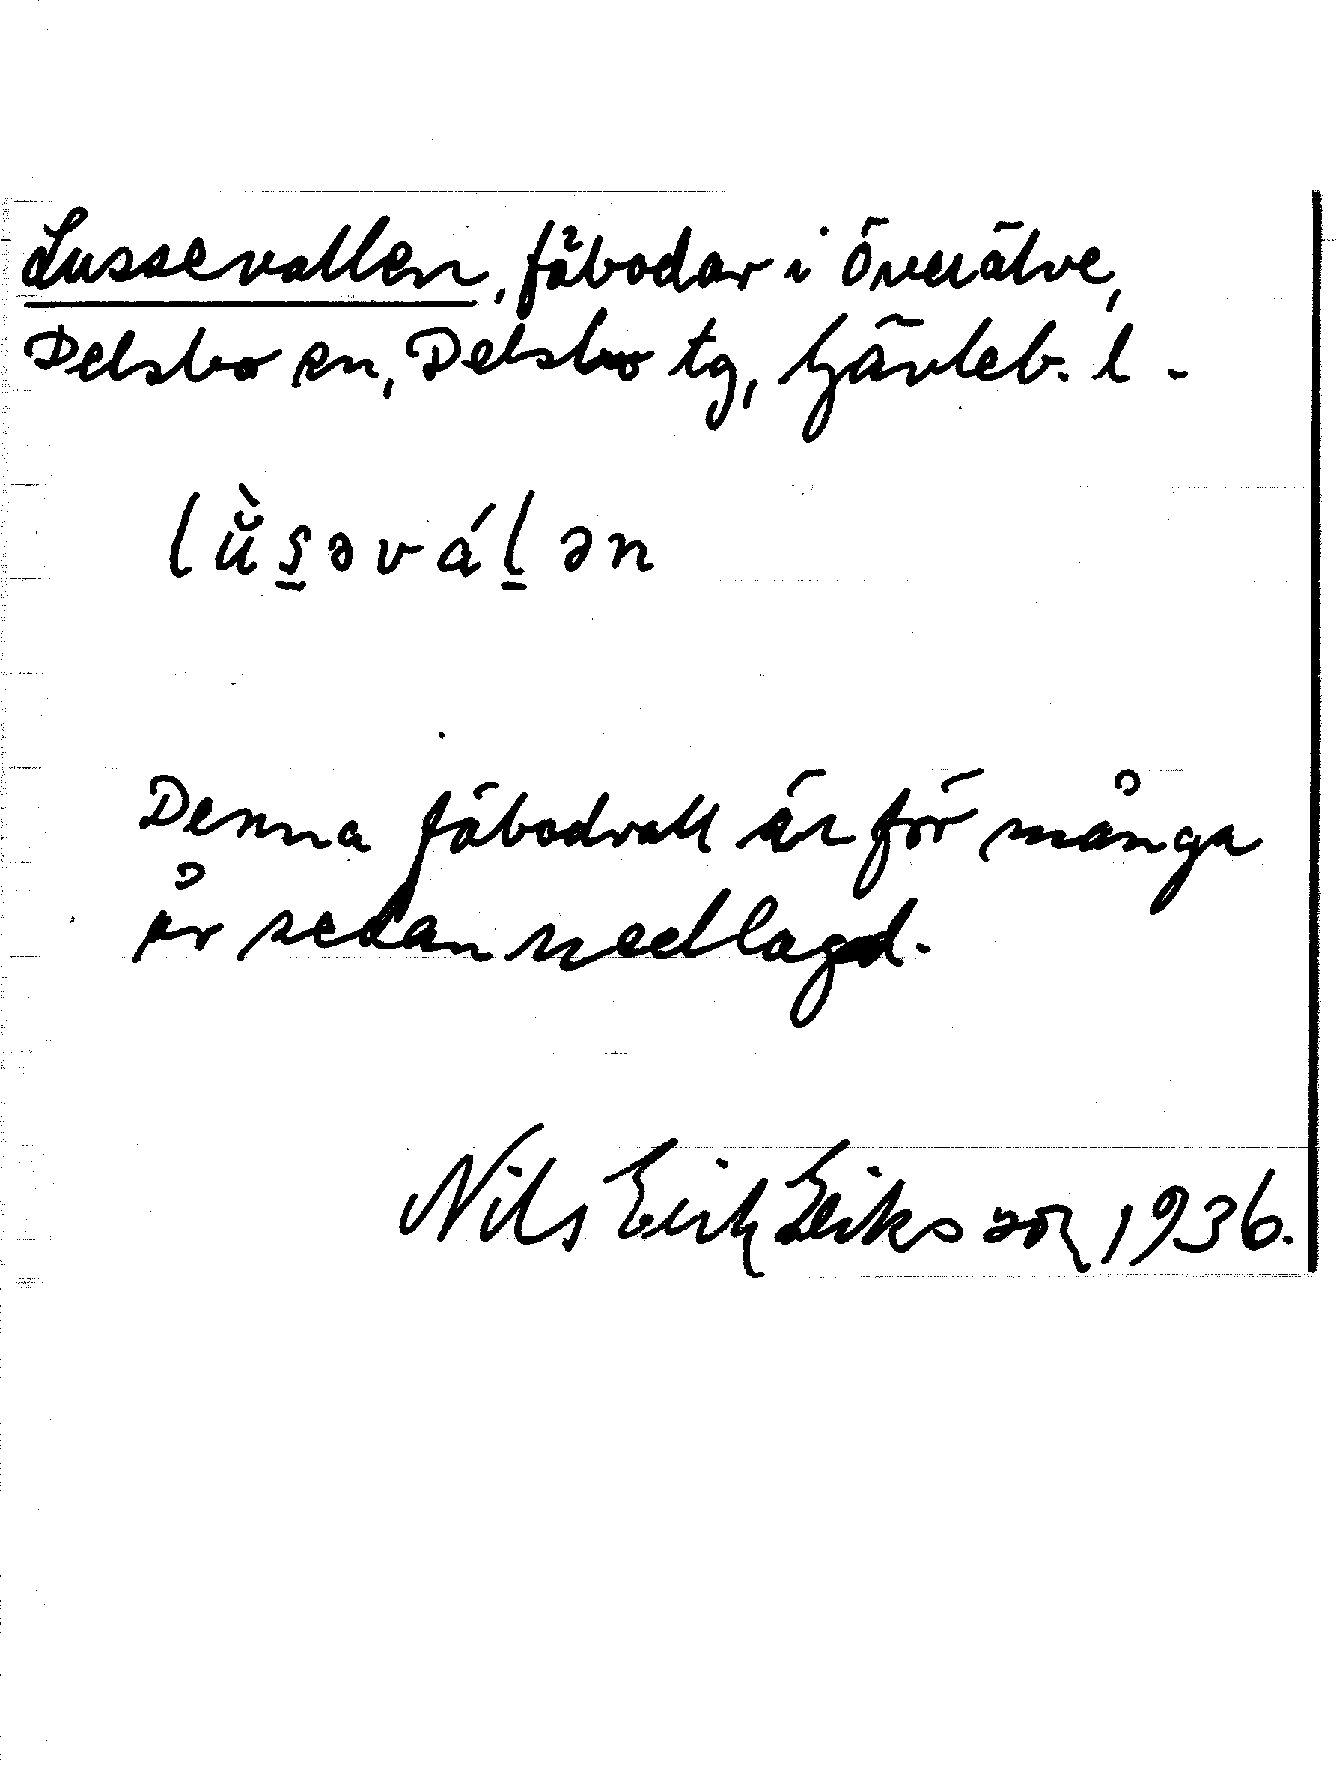 Lussevallen, fäbodar i Överälve,
Delsbo sn, Delsbo tg, Gävleb. l.
lŭ̀s̲əvál̲ən
Denna fäbodvall är för många
år sedan nedlagd.
Nils Erik Eriksson 1936.